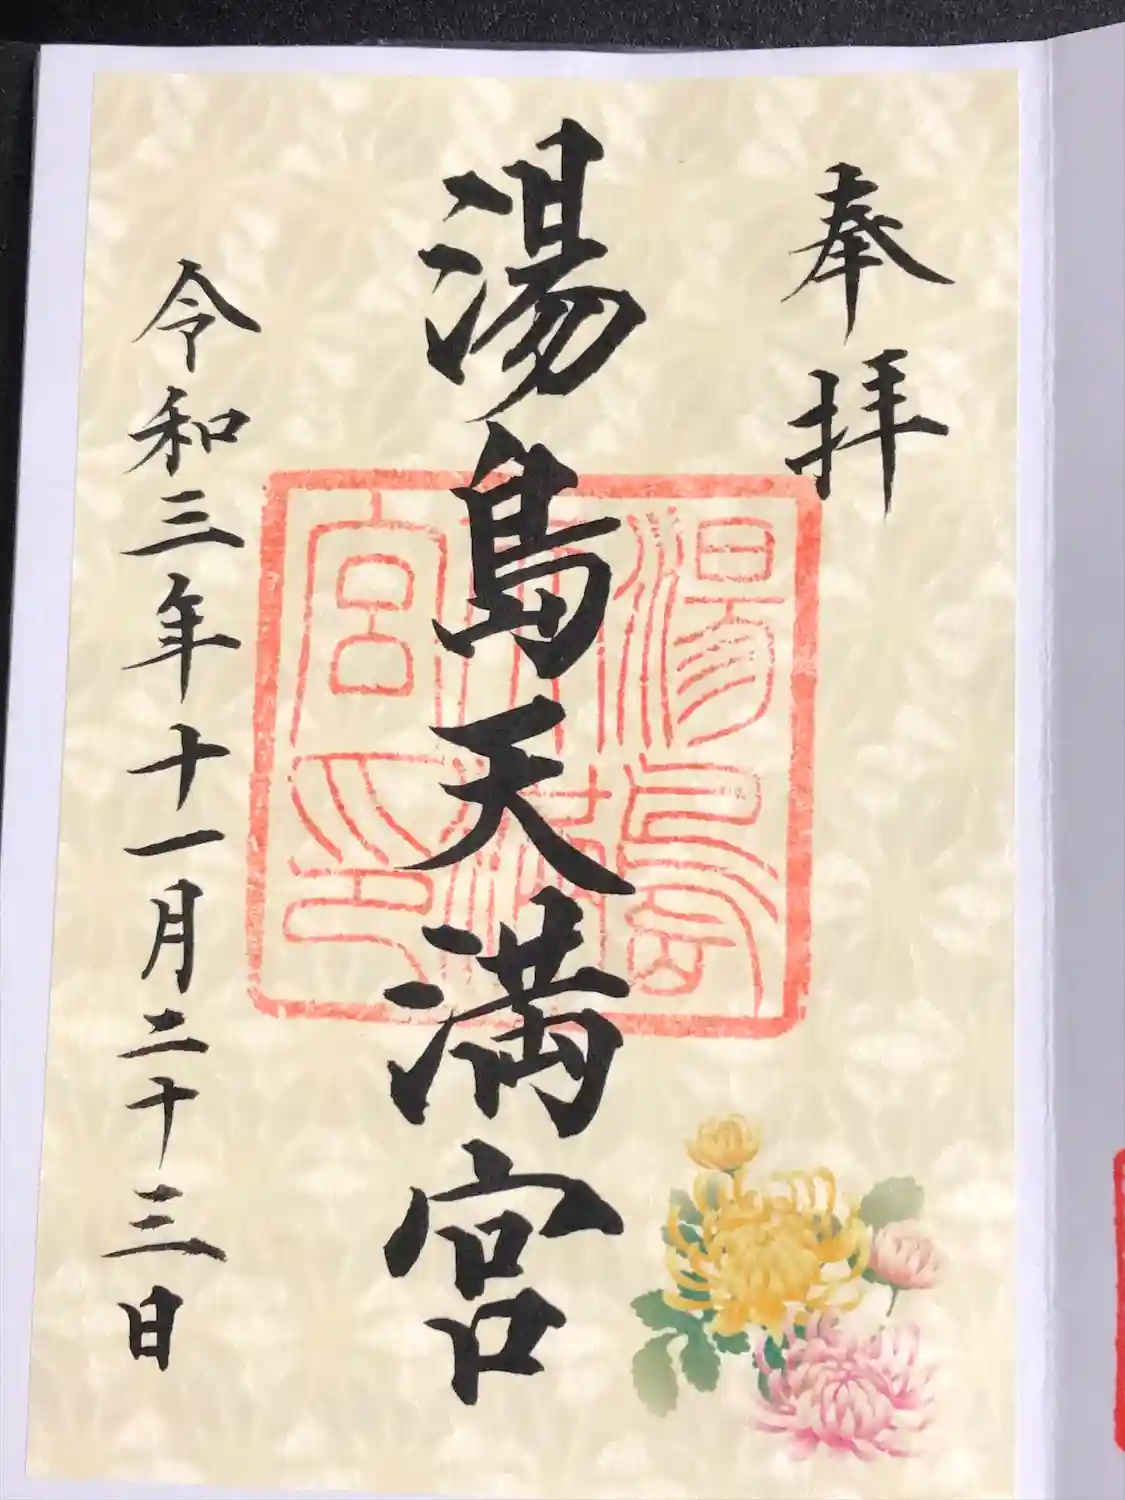 奉拝
湯島天満宮
湯島
天神
宮印
令和三年十一月二十三日